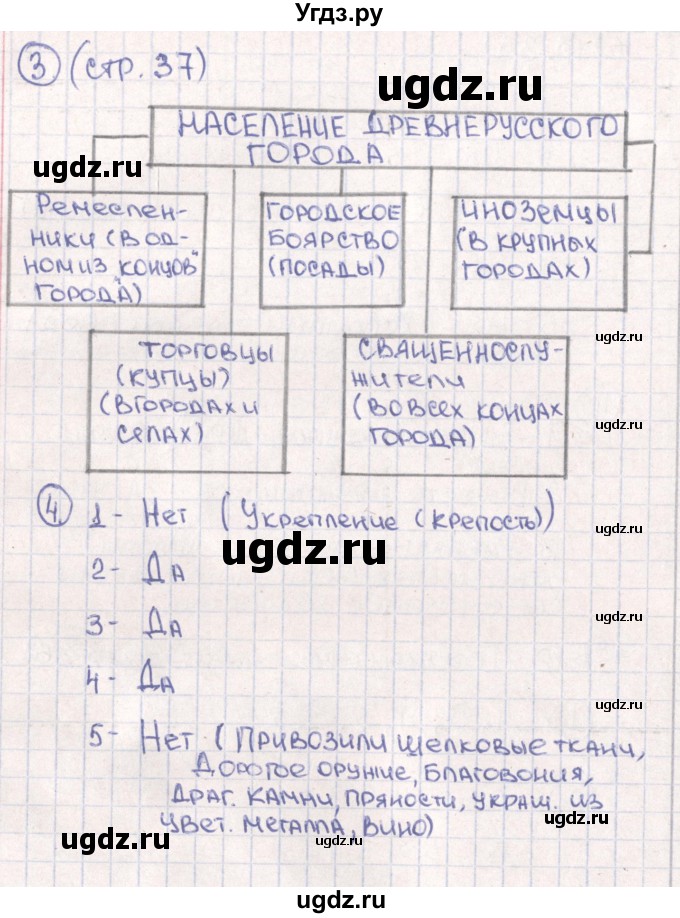 Угдз.ру
3 (стр. 37)
ugdz.ru
НАСЕЛЕНИЕ ДРЕВНЕРУССКОГО
ГОРОДА
ugdz.ru
Ремеслен-
ники (в од-
ном из "концов"
города)
ГОРОДСКОЕ
БОЯРСТВО
(ПОСАДЫ)
ИНОЗЕМЦЫ
(В КРУПНЫХ
ГОРОДАХ)
ugdz.ru
ТОРГОВЦЫ
(КУПЦЫ)
(В ГОРОДАХ И
СЕЛАХ)
СВЯЩЕННОСЛУ-
ЖИТЕЛИ
(ВО ВСЕХ КОНЦАХ
ГОРОДА)
ugdz.ru
4 1- Нет (Укрепление (крепость))
ugdz.ru
ugdz.ru
2- Да
ugdz.ru
3- Да
4- Да
ugdz.ru
5- Нет (Привозили шелковые ткани,
дорогое оружие, благовония,
драг. камни, пряности, украш. из
цвет. металла, вино)
ugdz.ru
ugdz.ru
ugdz.ru
ugdz.ru